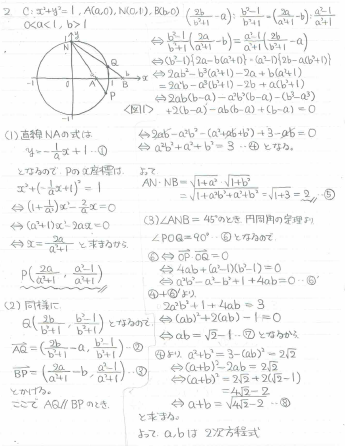 2 C: x²+y²=1, A(a,0), N(0,1), B(b,0)
0<a<1, b>1
y
N
Q
A
B
x
P
<図1>
(1) 直線NAの式は
y=-1/a x+1 …①
となるので、Pのx座標は
x²+(-1/a x+1)²=1
⇔(1+1/a²)x²-2/a x=0
⇔(a²+1)x²-2ax=0
⇔x=2a/(a²+1) と求まるから
P(2a/(a²+1), (a²-1)/(a²+1))
(2) 同様に
Q(2b/(b²+1), (b²-1)/(b²+1)) となるので
AQ=(2b/(b²+1)-a, (b²-1)/(b²+1)) …②
BP=(2a/(a²+1)-b, (a²-1)/(a²+1)) …③
とかける。
ここで AQ//BPのとき、
(2b/(b²+1)-a):(b²-1)/(b²+1)=(2a/(a²+1)-b):(a²-1)/(a²+1)
⇔(b²-1)/(b²+1)(2a/(a²+1)-b)=(a²-1)/(a²+1)(2b/(b²+1)-a)
⇔(b²-1){2a-b(a²+1)}=(a²-1){2b-a(b²+1)}
⇔2ab²-b³(a²+1)-2a+b(a²+1)
=2a²b-a³(b²+1)-2b+a(b²+1)
⇔2ab(b-a)-a²b²(b-a)-(b³-a³)
+2(b-a)-ab(b-a)+(b-a)=0
⇔2ab-a²b²-(a²+ab+b²)+3-ab=0
⇔a²b²+a²+b²=3 …④ となる。
よって
AN・NB=√(1+a²)・√(1+b²)
=√(1+a²+b²+a²b²)=√(1+3)=2 …⑤
(3) ∠ANB=45°のとき、円周角の定理より
∠POQ=90° …⑥ となるので
⑥⇔OP・OQ=0
⇔4ab+(a²-1)(b²-1)=0
⇔a²b²-a²-b²+1+4ab=0 …⑥'
④+⑥'より
2a²b²+1+4ab=3
⇔(ab)²+2(ab)-1=0
⇔ab=√2-1 …⑦ となるから
④より a²+b²=3-(ab)²=2√2
⇔(a+b)²-2ab=2√2
⇔(a+b)²=2√2+2(√2-1)
=4√2-2
⇔a+b=√(4√2-2) …⑧
と求まる。
よって a,bは2次方程式